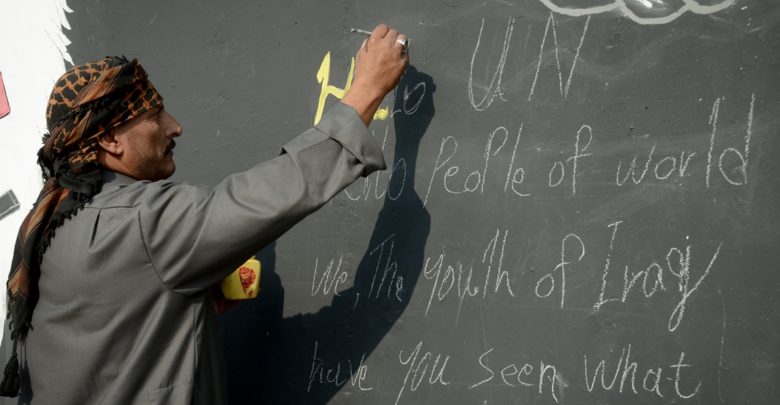 Hello UN
Hello People of world
We, The Youth of Iraq
have You Seen What